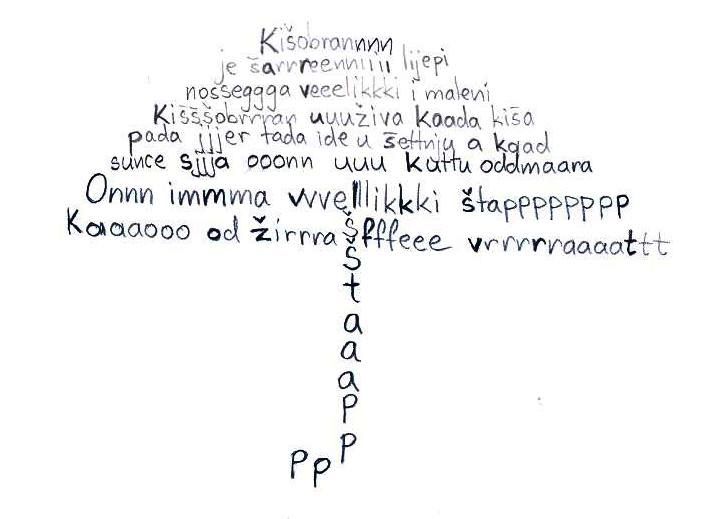 Kišobrannnn
je šarrreenniiii lijepi
nosseggga veeelikkki i maleni
Kiššššobrrran uuuživa kaada kiša
pada jjjer tada ide u šettnju a kaad
sunce sjjja ooonn uuu kuttu oddmaara
Onnn immma vvvelllikkki štapppppppp
Kaaaooo od žirrrrafffeee vrrrrraaaattt
Š
š
t
a
a
a
p
p
p
p